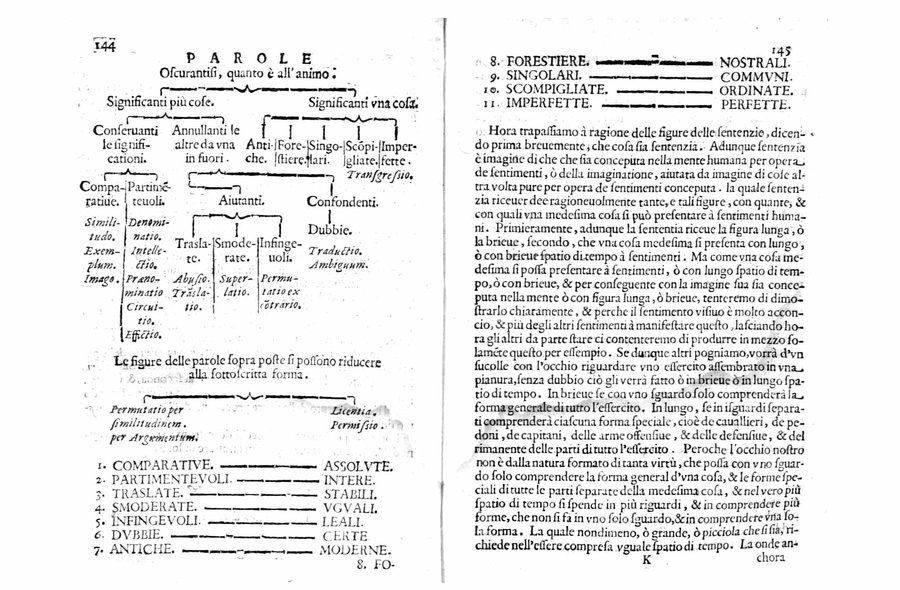 144
PAROLE
Oscurantisi, quanto è all'animo:
Significanti più cose. Significanti vna cosa.
Conseruanti Annullanti le
le signifi- altre da vna Anti- Fore- Singo- Scõpi- Imper-
cationi. in fuori. che. stiere. lari. gliate. fette.
Transgressio.
Compa- Partimẽ- Aiutanti. Confondenti.
ratiue. teuoli.
Dubbie.
Simili- Denomi-
tudo. natio. Trasla- Smode- Infinge- Traductio.
Exem- Intelle- te. rate. uoli. Ambiguum.
plum. ctio.
Imago. Prano- Abusio. Super- Permu-
minatio Trasla- latio. tatio ex
Circui- tio. cõtrario.
tio.
Effictio.
Le figure delle parole sopra poste si possono riducere
alla sottoscritta forma.
Permutatio per Licentia.
similitudinem. Permissio.
per Argumentum.
1. COMPARATIVE. ASSOLVTE.
2. PARTIMENTEVOLI. INTERE.
3. TRASLATE. STABILI.
4. SMODERATE. VGVALI.
5. INFINGEVOLI. LEALI.
6. DVBBIE. CERTE
7. ANTICHE. MODERNE.
8. FO-
145
8. FORESTIERE. NOSTRALI.
9. SINGOLARI. COMMVNI.
10. SCOMPIGLIATE. ORDINATE.
11. IMPERFETTE. PERFETTE.
Hora trapassiamo à ragione delle figure delle sentenzie, dicen-
do prima breuemente, che cosa sia sentenzia. Adunque sentenzia
è imagine di che che sia conceputa nella mente humana per opera
de sentimenti, ò della imaginatione, aiutata da imagine di cose al-
tra volta pure per opera de sentimenti conceputa. la quale senten-
zia riceuer dee ragioneuolmente tante, e tali figure, con quante, &
con quali vna medesima cosa si può presentare à sentimenti huma-
ni. Primieramente, adunque la sententia riceue la figura lunga, ò
la brieue, secondo, che vna cosa medesima si presenta con lungo,
ò con brieue spatio di tempo à sentimenti. Ma come vna cosa me-
desima si possa presentare à sentimenti, ò con lungo spatio di tem-
po, ò con brieue, & per conseguente con la imagine sua sia conce-
puta nella mente ò con figura lunga, ò brieue, tenteremo di dimo-
strarlo chiaramente, & perche il sentimento visiuo è molto accon-
cio, & più degli altri sentimenti à manifestare questo, lasciando ho-
ra gli altri da parte stare ci contenteremo di produrre in mezzo so-
lamẽte questo per essempio. Se dunque altri pogniamo, vorrà d'vn
sucolle con l'occhio riguardare vno essercito assembrato in vna
pianura, senza dubbio ciò gli verrà fatto ò in brieue ò in lungo spa-
tio di tempo. In brieue se con vno sguardo solo comprenderà la
forma generale di tutto l'essercito. In lungo, se in isguardi separa-
ti comprenderà ciascuna forma speciale, cioè de cauallieri, de pe-
doni, de capitani, delle arme offensiue, & delle defensiue, & del
rimanente delle parti di tutto l'essercito. Peroche l'occhio nostro
non è dalla natura formato di tanta virtù, che possa con vno sguar-
do solo comprendere la forma general d'vna cosa, & le forme spe-
ciali di tutte le parti separate della medesima cosa, & nel vero più
spatio di tempo si spende in più riguardi, & in comprendere più
forme, che non si fa in vno solo sguardo, & in comprendere vna so-
la forma. La quale nondimeno, ò grande, ò picciola che si sia, ri-
chiede nell'essere compresa vguale spatio di tempo. La onde an-
K chora